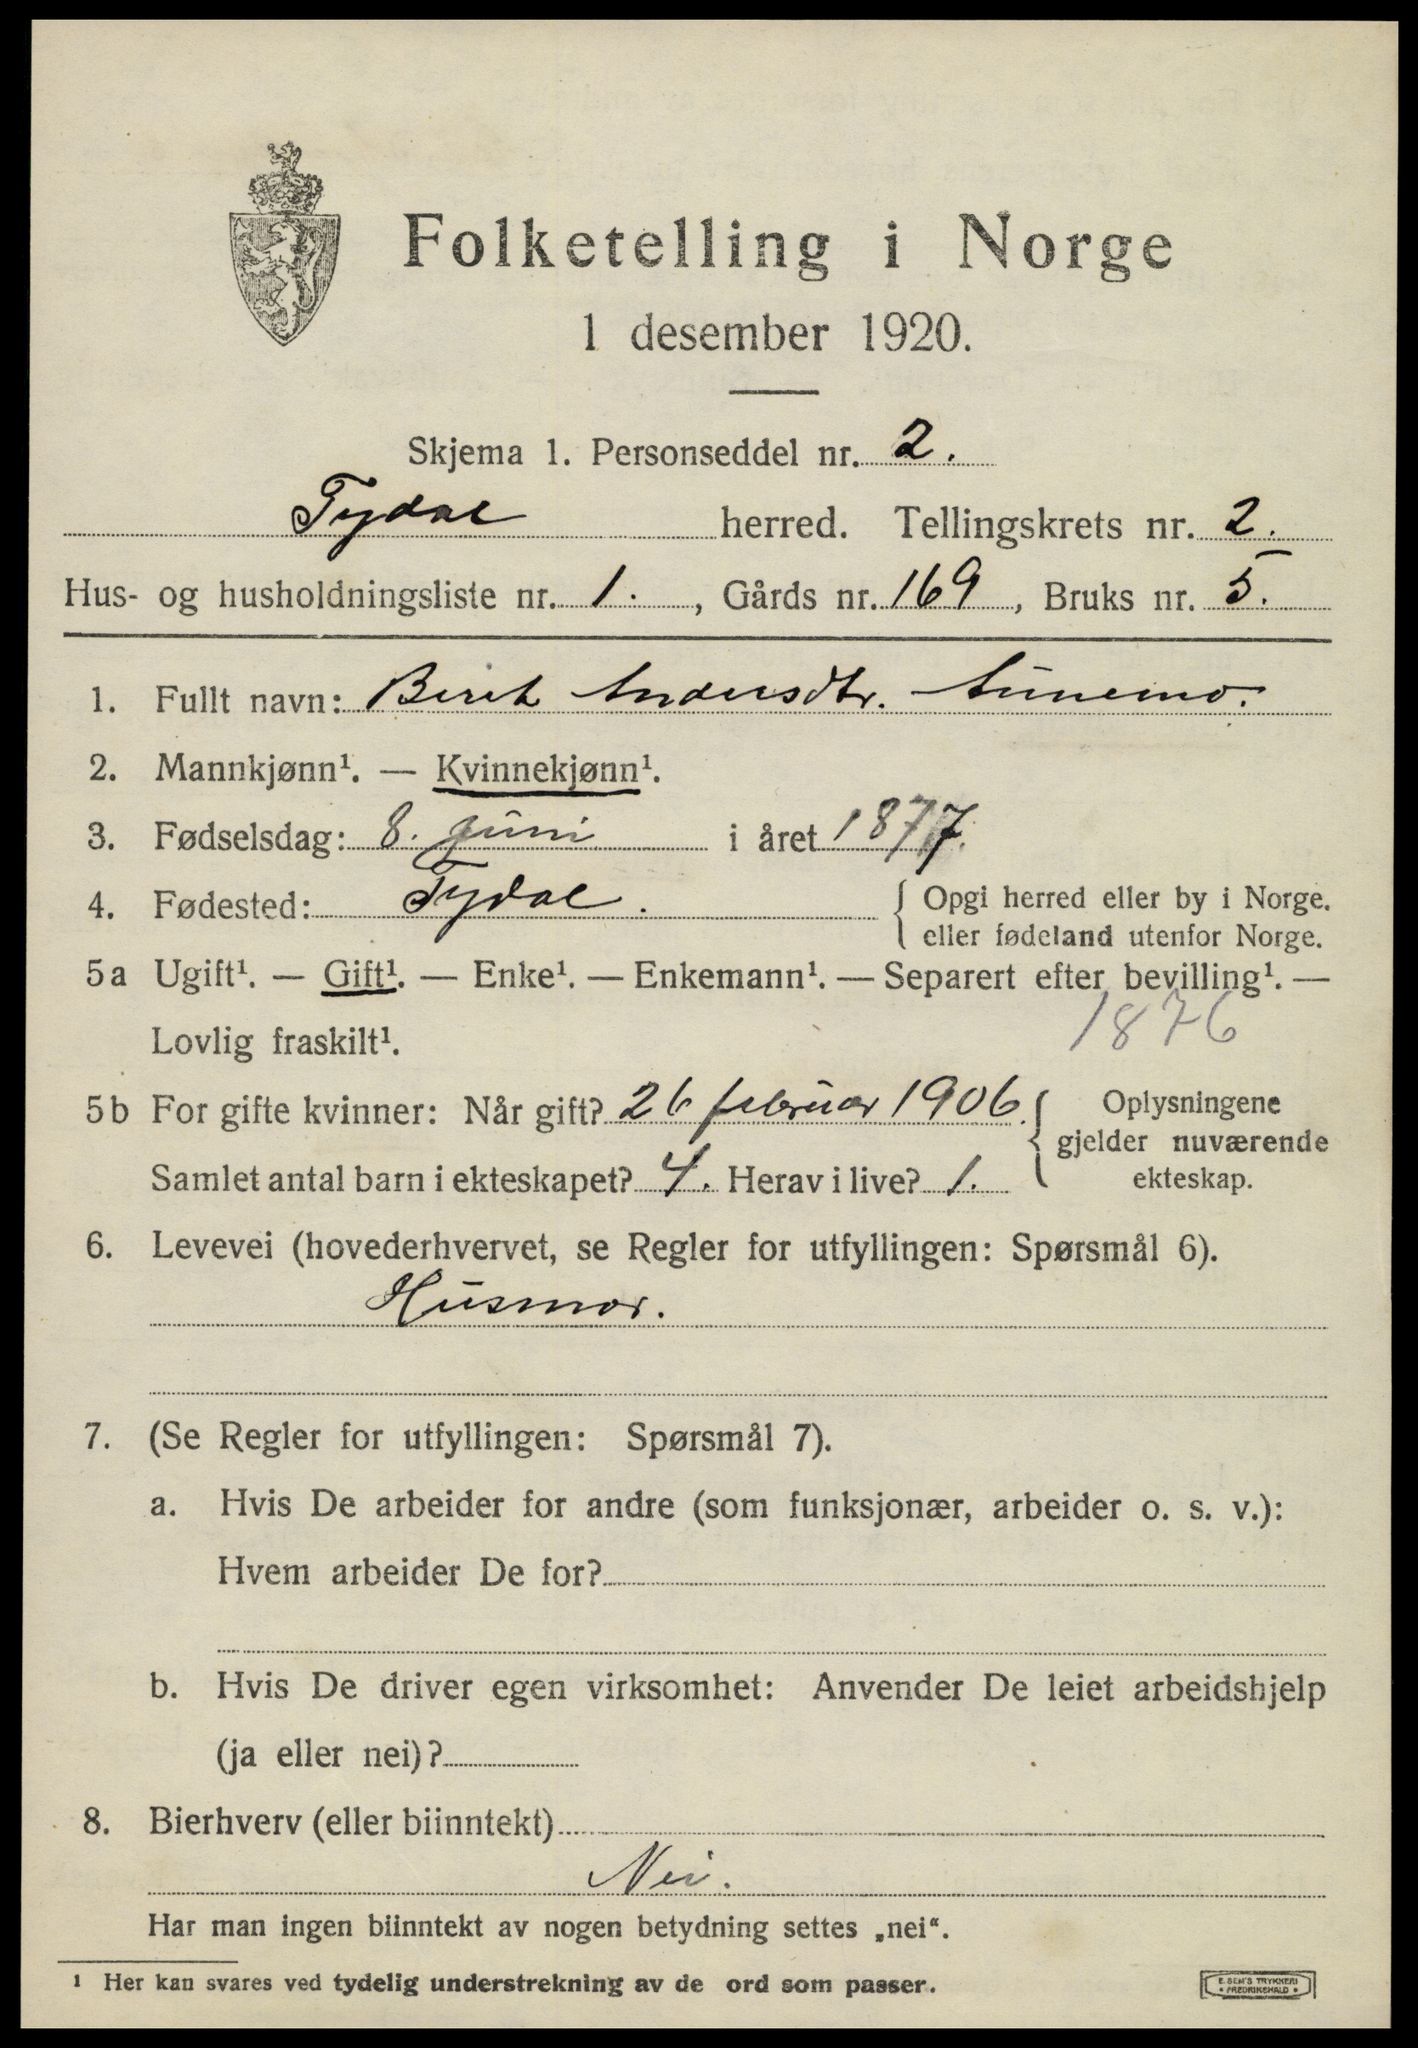 Folketelling i Norge
1 desember 1920.
Skjema 1. Personseddel nr. 2.
Tydal herred. Tellingskrets nr. 2.
Hus- og husholdningsliste nr. 1. , Gårds nr. 169 , Bruks nr. 5.
1. Fullt navn: Berit Andersdtr. Aunemo.
2. Mannkjønn¹. — Kvinnekjønn¹.
3. Fødselsdag: 8. juni i året 1877.
4. Fødested: Tydal. { Opgi herred eller by i Norge.
eller fødeland utenfor Norge.
5a Ugift¹. — Gift¹. — Enke¹. — Enkemann¹. — Separert efter bevilling¹. —
Lovlig fraskilt¹. 1876
5b For gifte kvinner: Når gift? 26 februar 1906. { Oplysningene
gjelder nuværende
Samlet antal barn i ekteskapet? 4. Herav i live? 1. ekteskap.
6. Levevei (hovederhvervet, se Regler for utfyllingen: Spørsmål 6).
Husmor.
7. (Se Regler for utfyllingen: Spørsmål 7).
a. Hvis De arbeider for andre (som funksjonær, arbeider o. s. v.):
Hvem arbeider De for?
b. Hvis De driver egen virksomhet: Anvender De leiet arbeidshjelp
(ja eller nei)?
8. Bierhverv (eller biinntekt)
Nei.
Har man ingen biinntekt av nogen betydning settes „nei“.
¹ Her kan svares ved tydelig understrekning av de ord som passer.
E. SEM'S TRYKKERI
• FREDRIKSHALD •